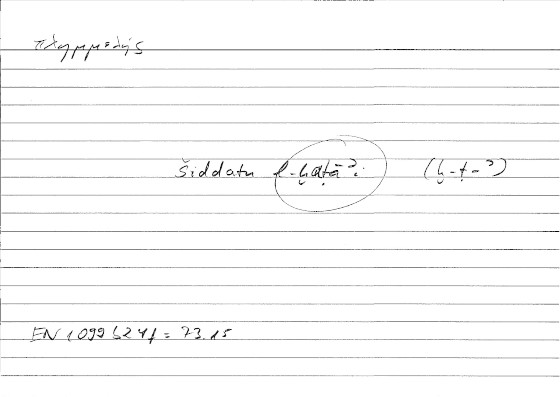 πλημμελής
šiddatu l-ḫaṭāʾi (ḫ-ṭ-ʾ)
EN 1099 b 24f = 73.15